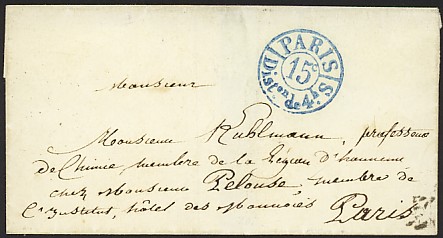 PARIS
15c
Diston de 4h S.
Monsieur
Monsieur Kuhlmann, professeur
de Chimie membre de la Légion d'honneur
chez Monsieur Pelouse, membre de
l'Institut, hôtel des Monnoies
Paris